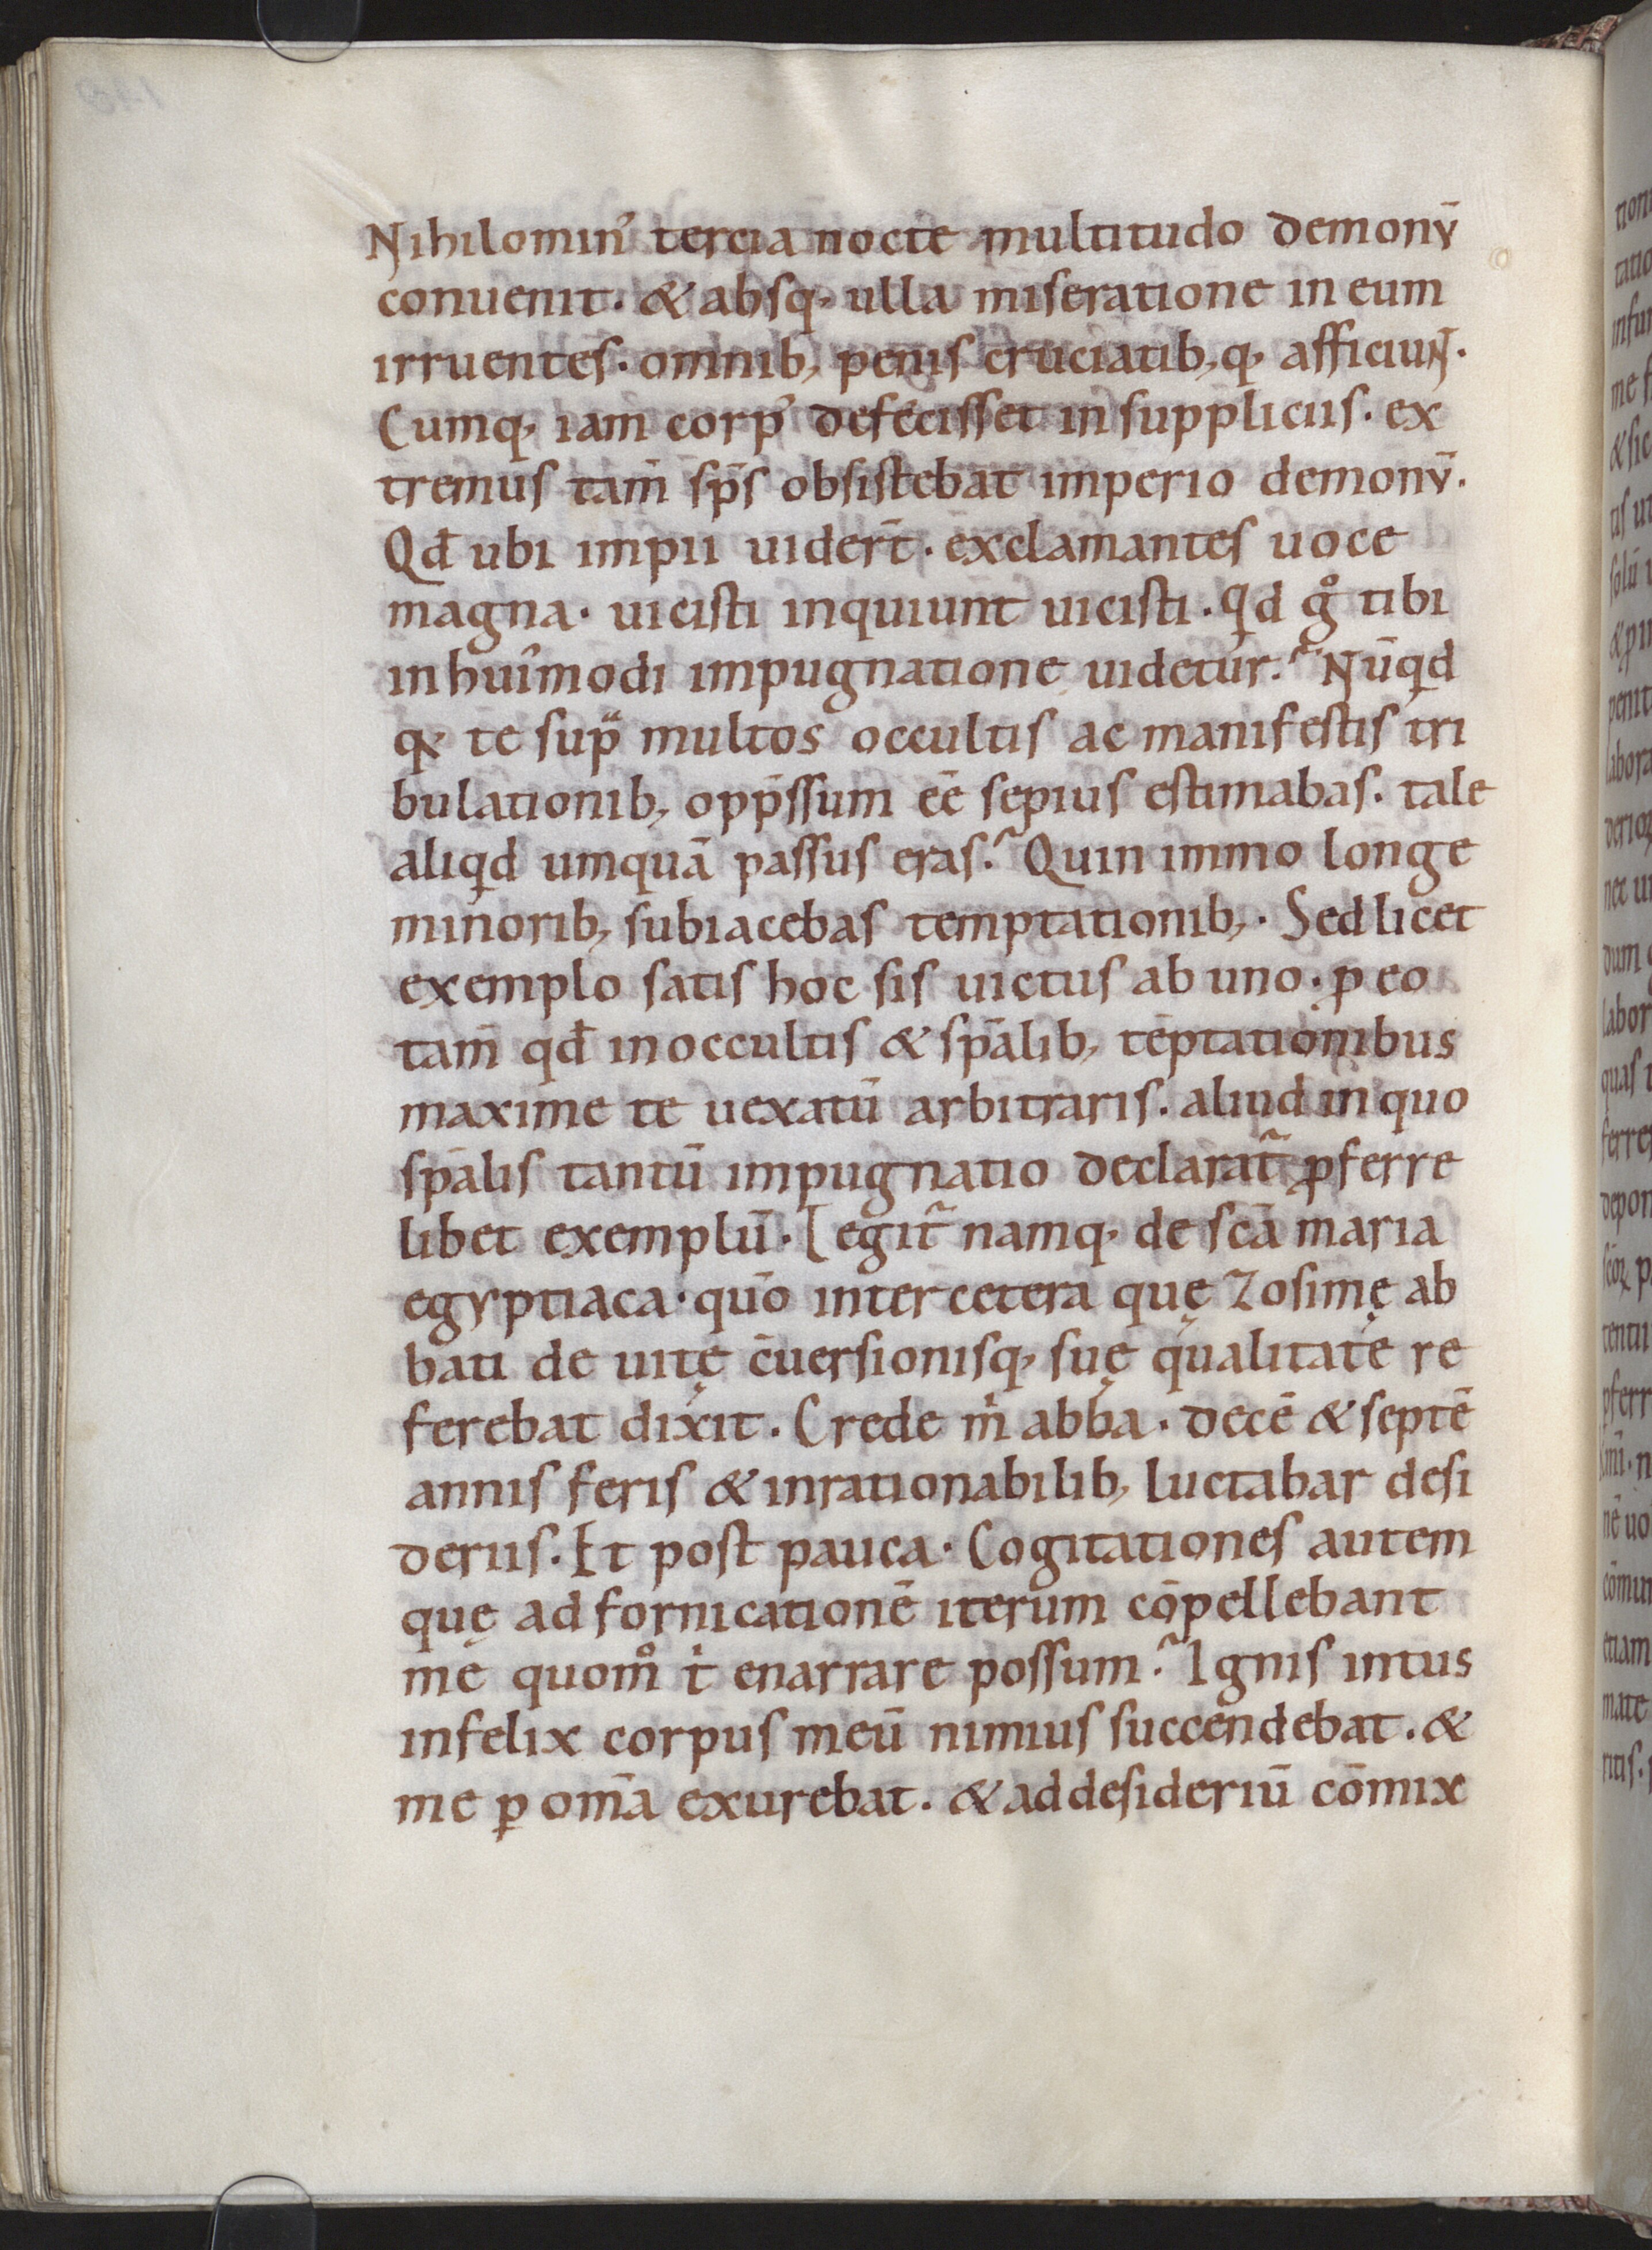 Nihilomin᾽ tercia nocte multitudo demonv̄
conuenit. & absq; ulla miseratione in eum
irruentes. omnib; penis cruciatib;q; afficiuNT.
Cumq; iam corp᾽ defecisset in suppliciis. ex
tremus tam̄ sp̄s obsistebat imperio demonv̄.
Qđ ubi impii uider̄t. exclamantes uoce
magna. uicisti inquiunt uicisti. Qd gͦ tibi
in hui᾽modi impugnatione uidetur? Nūqd
qͥ te sup̄ multos occultis ac manifestis tri
bulationib; opp̄ssum eē sepius estimabas. tale
aliqd umquā passus eras? Quin immo longe
minorib; subiacebas temptationib;. Sed licet
exemplo satis hoc sis uictus ab uno. ꝓ eo
tam̄ qđ in occultis & sp̄alib; tēptationibus
maxime te uexatū arbitraris. aliud in quo
sp̄alis tantū impugnatio declarat᷑ ꝓferre
libet exemplū. Legit᷑ namq; de sc̄a maria
egyptiaca. quō inter cetera quę Zosimę ab
bati de uitę c̄uersionisq; suę qualitate re
ferebat dixit. Crede mͥ abba. decē & septē
annis feris & inrationabilib; luctabar desi
deriis. Et post pauca. Cogitationes autem
quę ad fornicationē iterum cōpellebant
me quomͦ tͥ enarrare possum? Ignis intus
infelix corpus meū nimius succendebat. &
me ꝑ om̄a exurebat. & ad desideriū cōmix